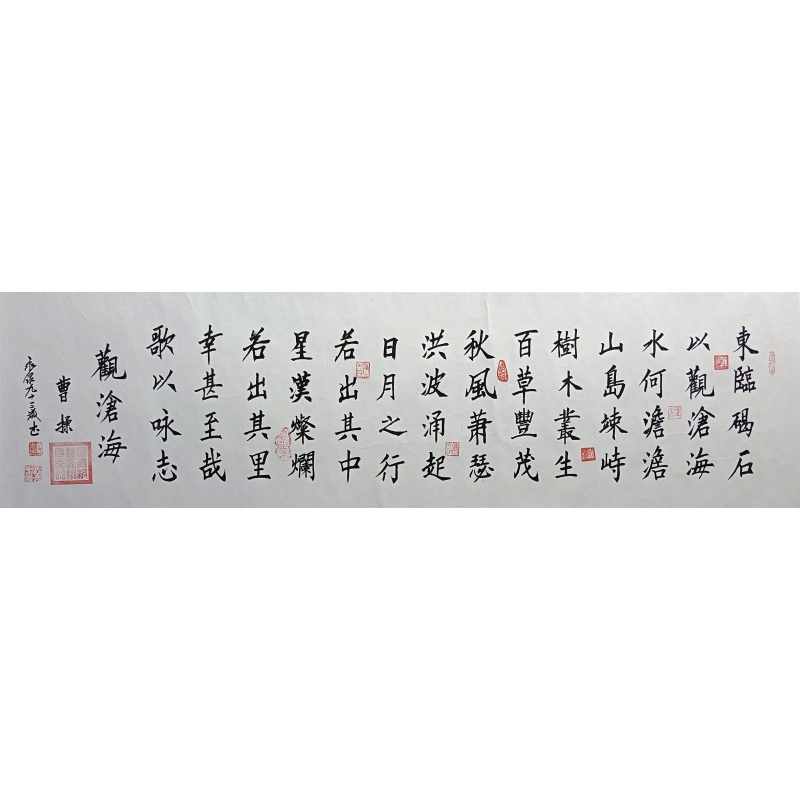 東臨碣石
以觀滄海
水何澹澹
山島竦峙
樹木叢生
百草豐茂
秋風蕭瑟
洪波涌起
日月之行
若出其中
星漢燦爛
若出其里
幸甚至哉
歌以咏志
觀滄海
曹操
九十三歲书